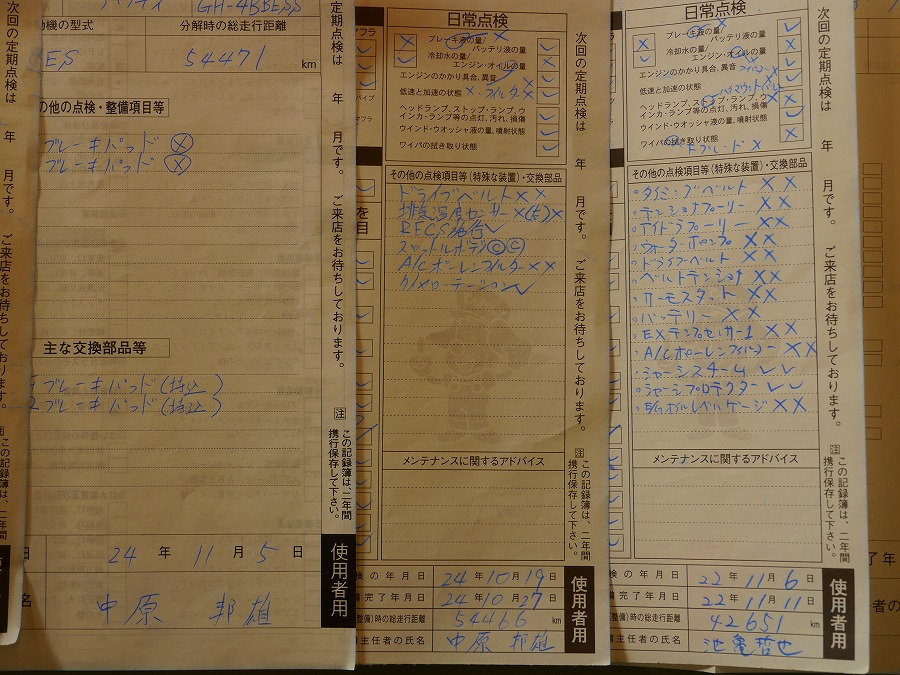 GH-4BBESS
動機の型式
分解時の総走行距離
54471 km
の他の点検・整備項目等
ブレーキパッド ⓧ
ブレーキパッド ⓧ
主な交換部品等
ブレーキパッド(持込)
ブレーキパッド(持込)
24 年 11 月 5 日
中原 邦雄
次回の定期点検は 年 月です。ご来店をお待ちしております。
注 この記録簿は、二年間携行保存して下さい。
使用者用
日常点検
ブレーキ液の量/
バッテリ液の量/
冷却水の量/
エンジン・オイルの量
エンジンのかかり具合、異音
低速と加速の状態
ヘッドランプ、ストップ・ランプ、ウインカ・ランプ等の点灯、汚れ、損傷
ウインド・ウオッシャ液の量、噴射状態
ワイパの拭き取り状態
その他の点検項目等(特殊な装置)・交換部品
ドライブベルト ✕✕
排気温度センサー ✕(右)✕
RECS施行 ✓
スロットルボデー Ⓒ Ⓒ
A/Cポーレンフィルター ✕✕
タイヤローテーション ✓
メンテナンスに関するアドバイス
検の年月日 24年10月19日
備完了年月日 24年10月27日
(整備)時の総走行距離 54466 km
主任者の氏名 中原 邦雄
次回の定期点検は 年 月です。ご来店をお待ちしております。
注 この記録簿は、二年間携行保存して下さい。
使用者用
日常点検
ブレーキ液の量/
バッテリ液の量/
冷却水の量/
エンジン・オイルの量
エンジンのかかり具合、異音
低速と加速の状態
ヘッドランプ、ストップ・ランプ、ウインカ・ランプ等の点灯、汚れ、損傷
ウインド・ウオッシャ液の量、噴射状態
ワイパの拭き取り状態
その他の点検項目等(特殊な装置)・交換部品
・タイミングベルト ✕✕
・テンショナプーリー ✕✕
・アイドラプーリー ✕✕
・ウォーターポンプ ✕✕
・ドライブベルト ✕✕
・ベルトテンショナ ✕✕
・サーモスタット ✕✕
・バッテリー ✕✕
・EXテンプセンサー1 ✕✕
・A/Cポーレンフィルター ✕✕
・シャーシスチーム ✓✓
・シャーシプロテクター ✓✓
・オイルレベルゲージ ✕✕
メンテナンスに関するアドバイス
検の年月日 22年11月6日
備完了年月日 22年11月11日
(整備)時の総走行距離 42651 km
主任者の氏名 池亀哲也
次回の定期点検は 年 月です。ご来店をお待ちしております。
注 この記録簿は、二年間携行保存して下さい。
使用者用